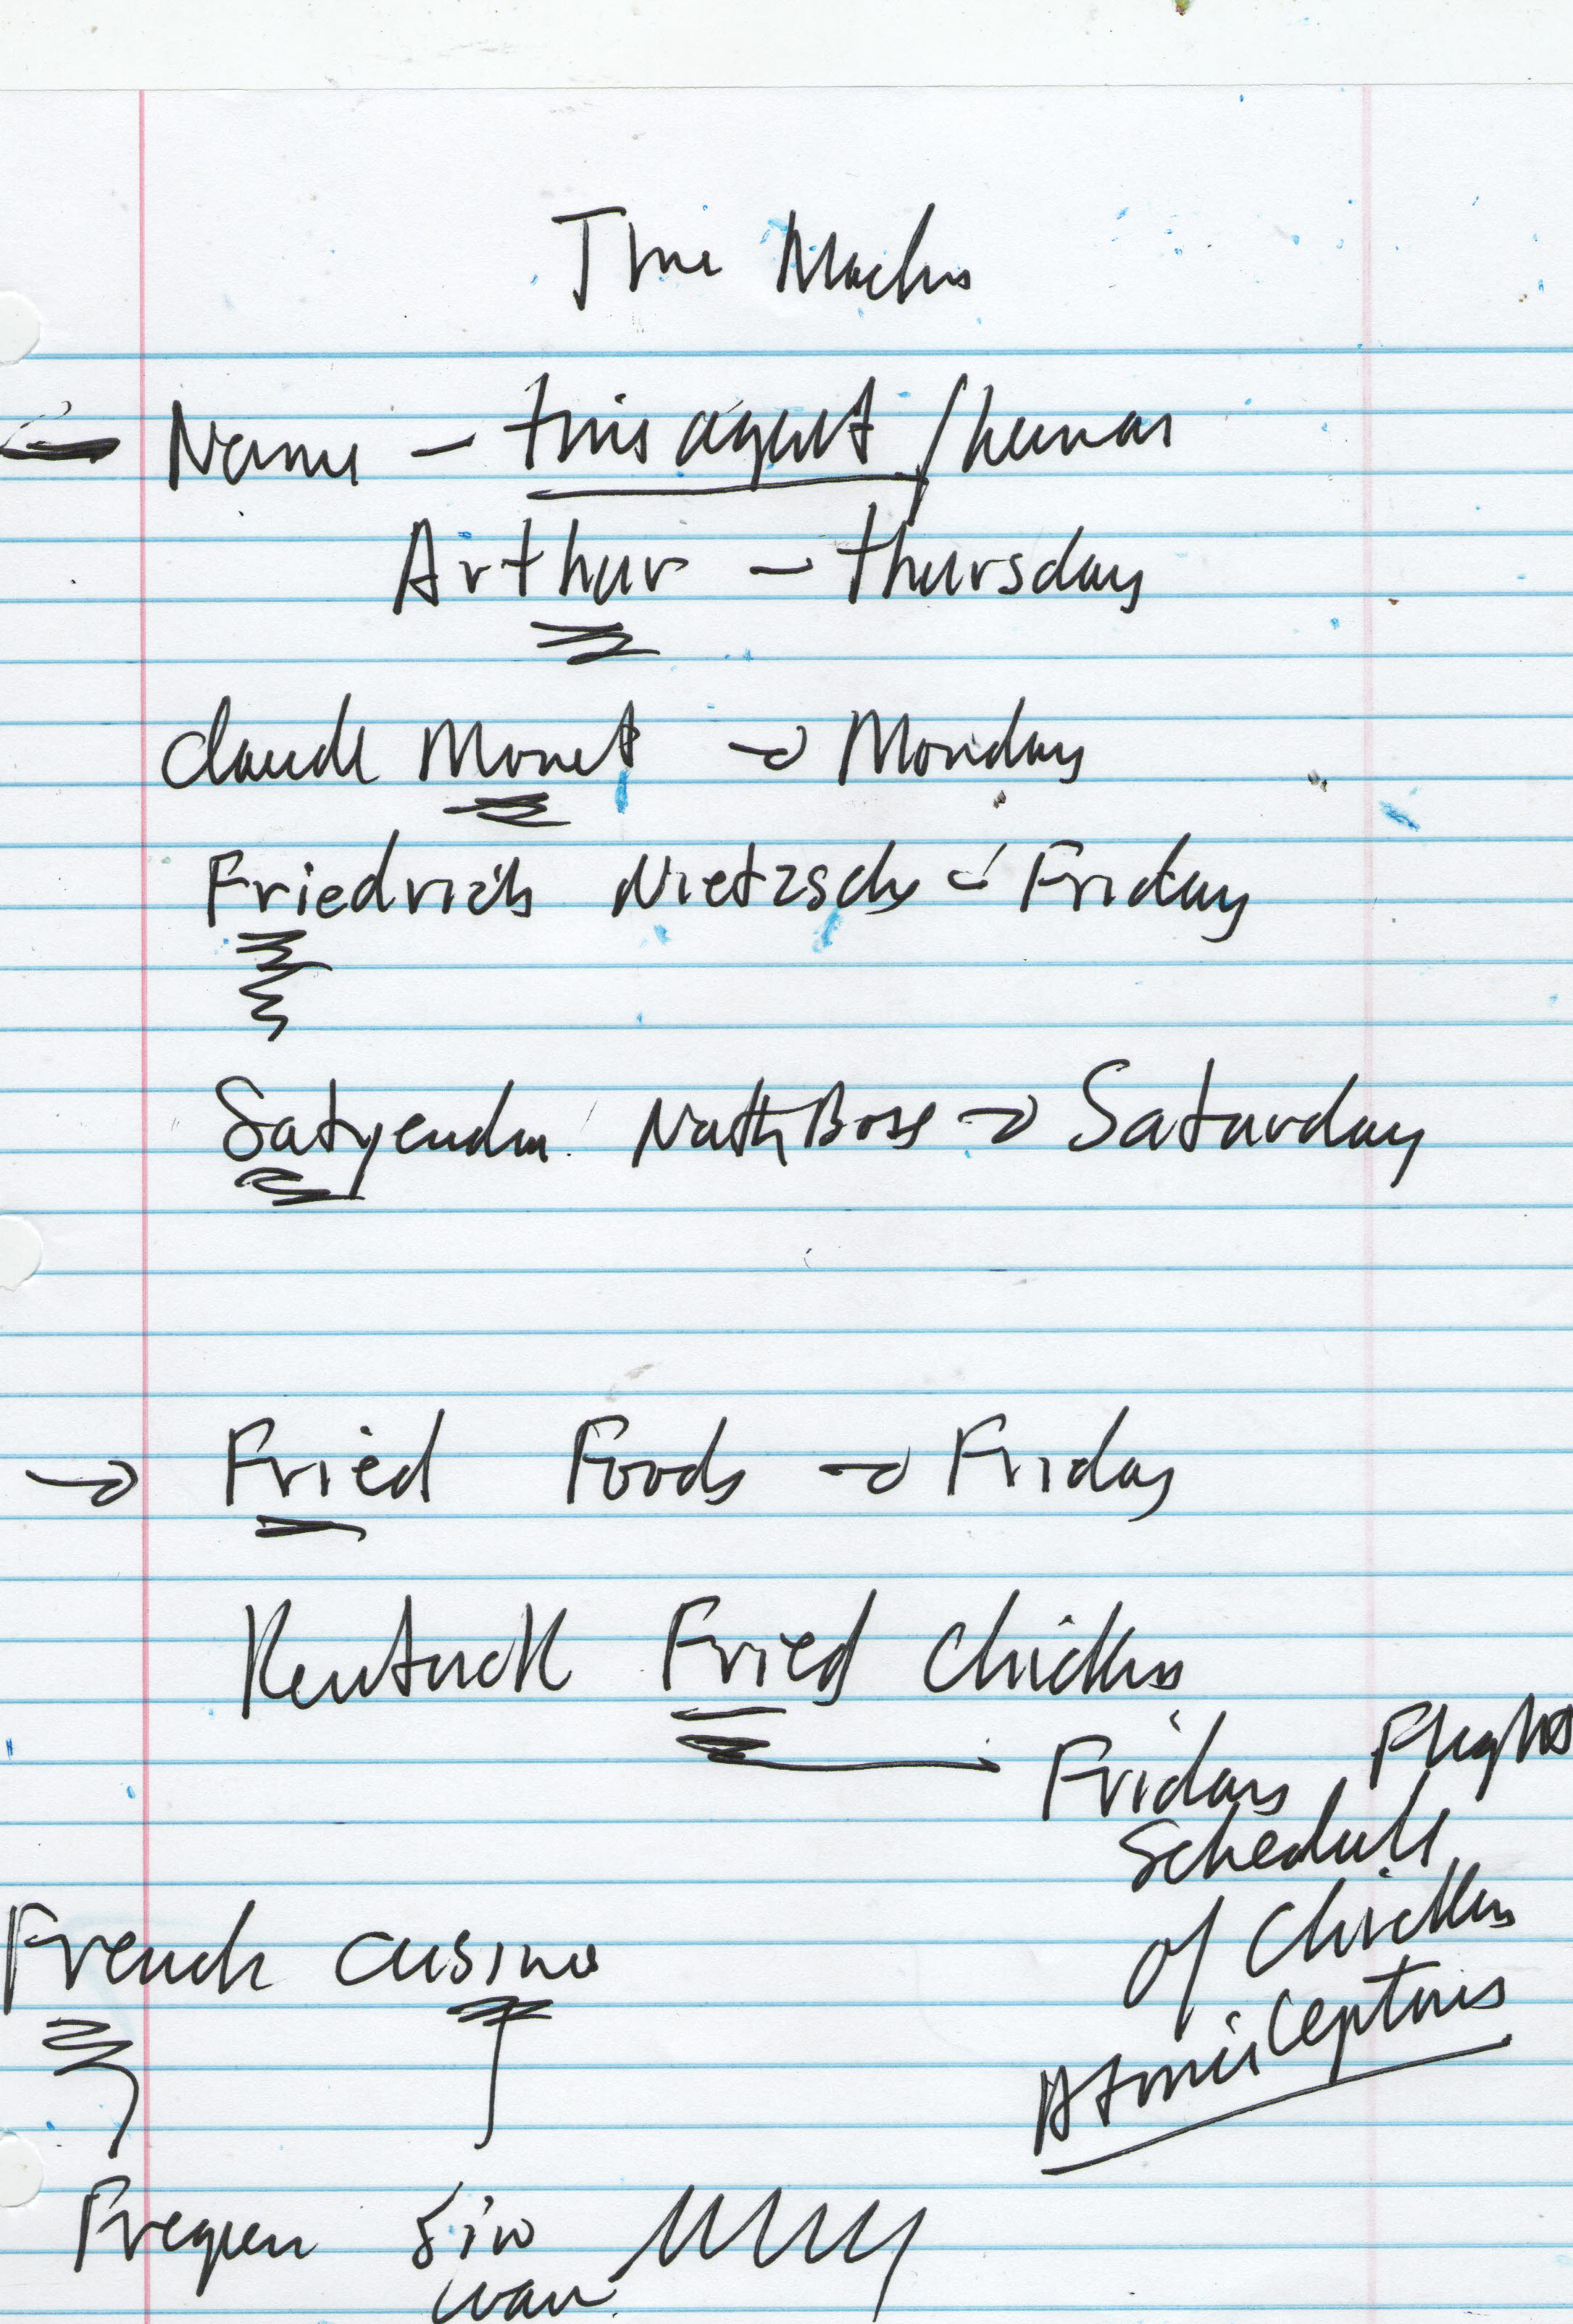 Time Machine
Name – time agent / human
Arthur – Thursday
Claude Monet → Monday
Friedrich Nietzsche – Friday
Satyendra Nath Bose → Saturday
→ Fried Foods → Friday
Kentuck Fried Chicken
Friday Flight
Schedule
of Chicken
Atomic
French cusine
Frequen Sin
wav